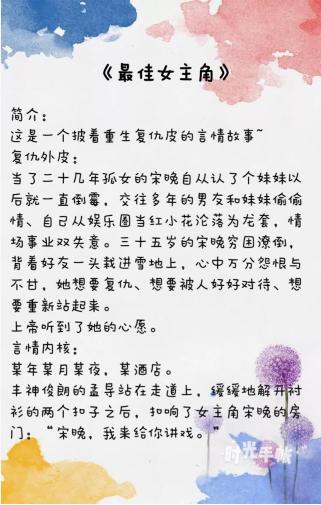 《最佳女主角》
简介：
这是一个披着重生复仇皮的言情故事~
复仇外皮：
当了二十几年孤女的宋晚自从认了个妹妹以
后就一直倒霉，交往多年的男友和妹妹偷偷
情、自己从娱乐圈当红小花沦落为龙套，情
场事业双失意。三十五岁的宋晚穷困潦倒，
背着好友一头栽进雪地上，心中万分怨恨与
不甘，她想要复仇、想要被人好好对待、想
要重新站起来。
上帝听到了她的心愿。
言情内核：
某年某月某夜，某酒店。
丰神俊朗的孟导站在走道上，缓缓地解开衬
衫的两个扣子之后，扣响了女主角宋晚的房
门：“宋晚，我来给你讲戏。”
时光手帐